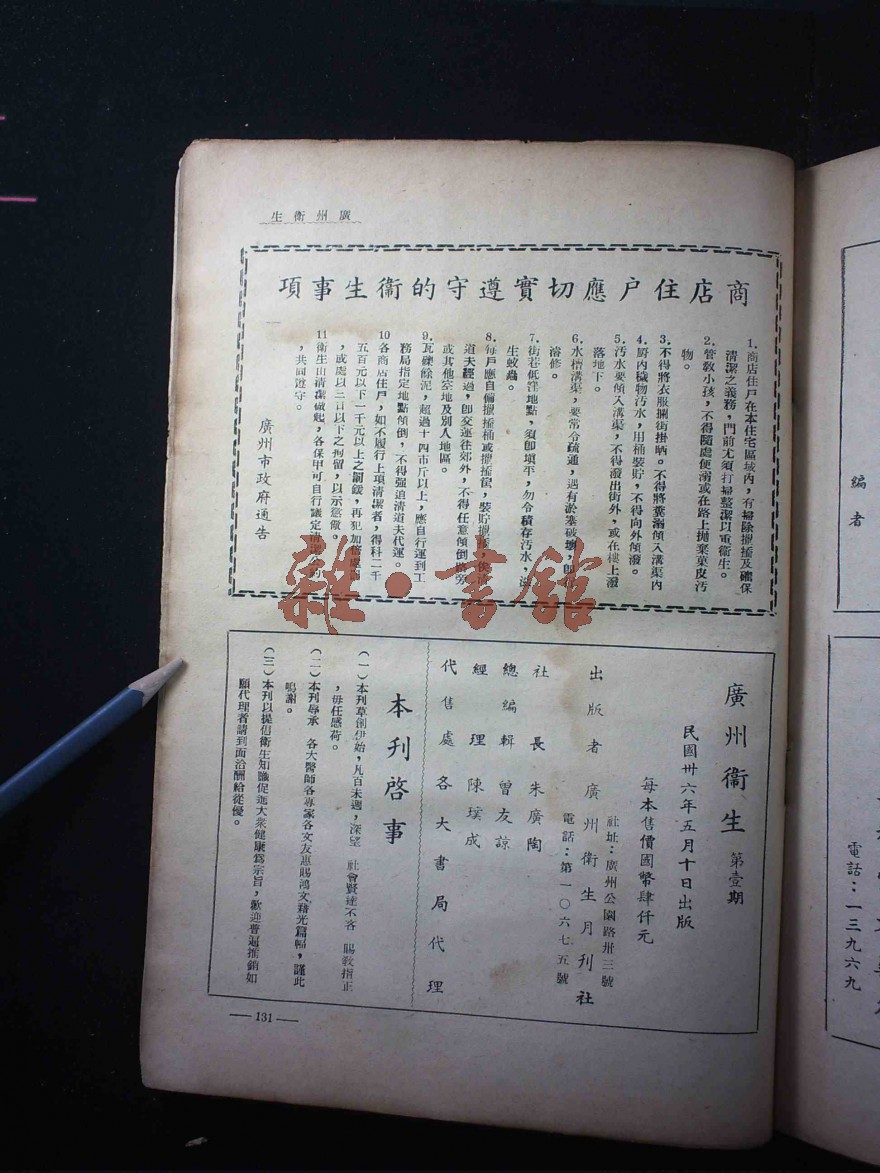 廣州衛生
商店住户應切實遵守的衞生事項
1.商店住戶在本住宅區域內，有掃除擸𢶍及確保
清潔之義務，門前尤須打掃整潔以重衞生。
2.管教小孩，不得隨處便溺或在路上拋棄菓皮汚
物。
3.不得將衣服攔街掛晒。不得將糞溺傾入溝渠內
4.厨內穢物汚水，用桶裝貯，不得向外傾潑。
5.汚水要傾入溝渠，不得潑出街外，或在樓上潑
落地下。
6.水槽溝渠，要常令疏通，遇有淤塞破壞，卽
濬修。
7.街巷低窪地點，須卽塡平，勿令積存汚水，滋
生蚊蟲。
8.每戶應自備擸𢶍桶或擸𢶍筐，裝貯擸𢶍，俟淸
道夫經過，卽交運往郊外，不得任意傾倒路旁
或其他空地及別人地區。
9.瓦礫餘泥，超過十四市斤以上，應自行運到工
務局指定地點傾倒，不得強迫淸道夫代運。
10各商店住戶，如不履行上項淸潔者，得科二千
五百元以下一千元以上之罰鍰，再犯加倍處
，或處以三日以下之拘留，以示懲儆。
11衞生由淸潔做起，各保甲可自行議定淸潔公約
，共同遵守。
廣州市政府通告
廣州衞生 第壹期
民國卅六年五月十日出版
每本售價國幣肆仟元
社址：廣州公園路卅三號
出版者 廣州衞生月刊社
電話：第一〇六七五號
社長 朱廣陶
總編輯 曾友諒
經理 陳璞成
代售處 各大書局代理
本刊啓事
（一）本刊草創伊始，凡百未週，深望 社會賢達不吝 賜敎指正
，毋任感荷。
（二）本刊辱承 各大醫師各專家各文友惠賜鴻文藉光篇幅，謹此
鳴謝。
（三）本刊以提倡衞生知識促進大衆健康爲宗旨，歡迎普遍推銷如
願代理者請到面洽酬給從優。
—131—
編者
電話：一三九六九
雜·書館